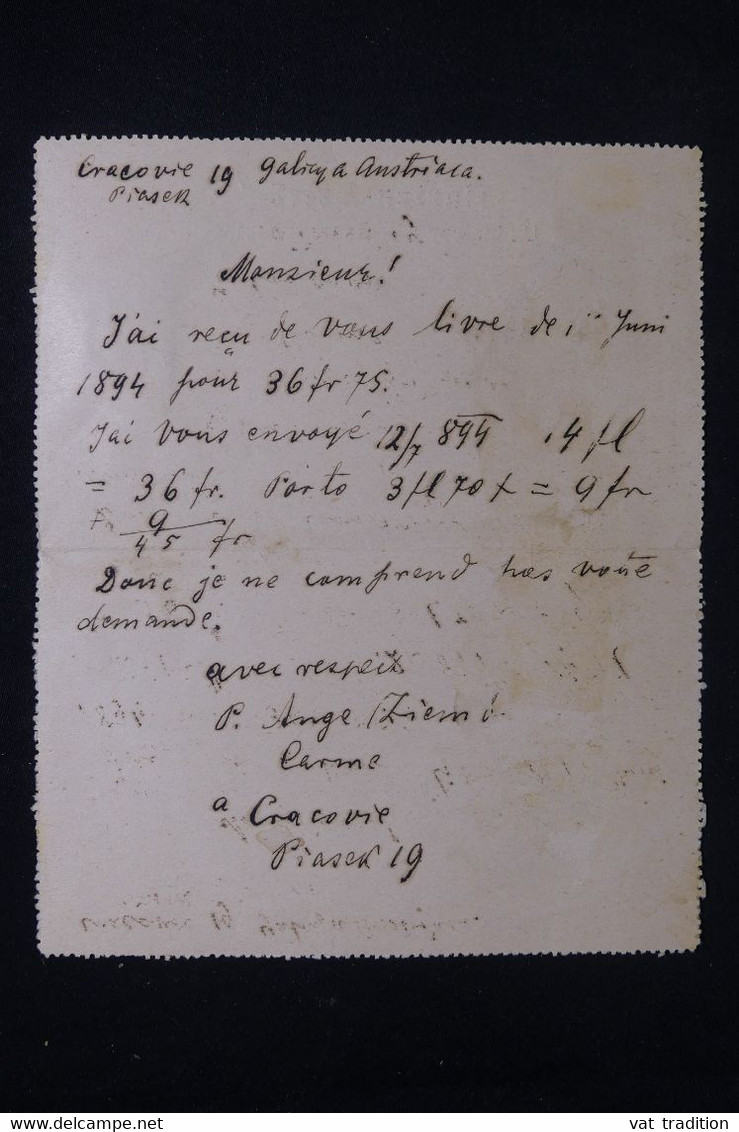 Cracovie 19 galicya Austriaca.
Piasek
Monsieur!
J'ai reçu de vous livre de 1" Juni
1894 pour 36 fr 75.
Jai vous envoyé 12/7 894 14 fl
= 36 fr. Porto 3 fl 70 x = 9 fr
9
45 fr
Donc je ne comprend pas votre
demande.
avec respect
P. Ange
Carme
a Cracovie
Piasek 19
www.delcampe.net
vat_tradition